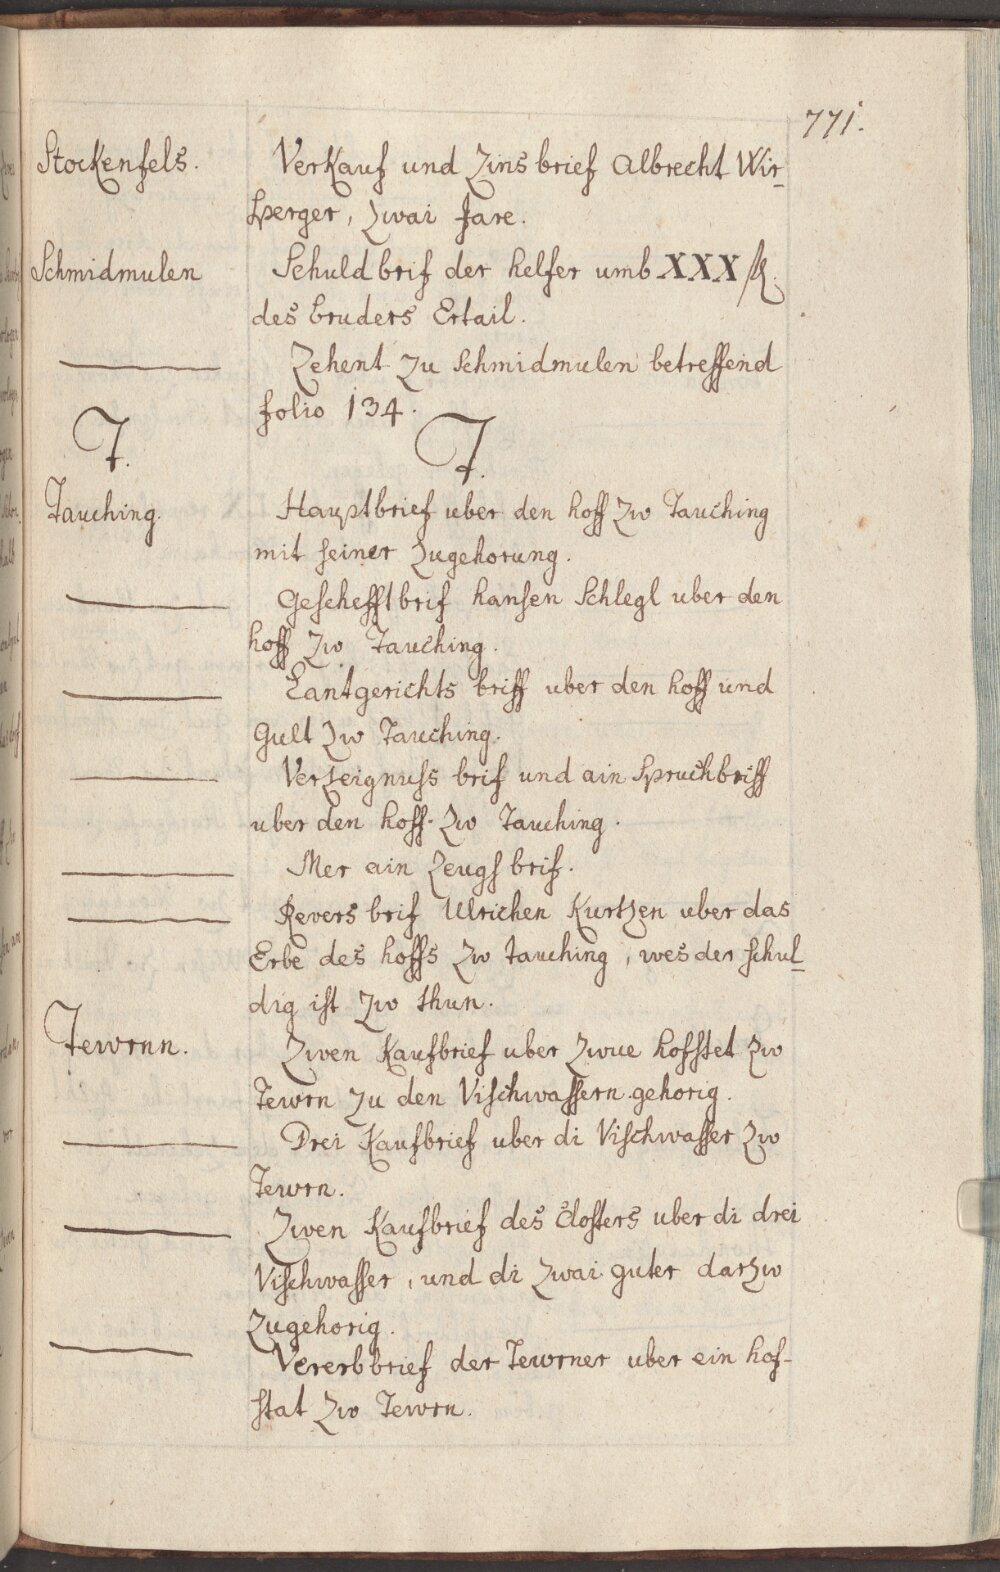 771.
Stockenfels. Verkauf und Zinsbrief Albrecht Wir-
sperger, Zwai Jare.
Schmidmulen Schuldbrif der helfer umb XXX
des bruders Ertail.
Zehent Zu Schmidmulen betreffend
folio 134.
T. T.
Tauching. Hauptbrief uber den hoff Zw Tauching
mit seiner Zugehorung.
Geschefftbrif hansen Schlegl uber den
hoff Zw Tauching.
Lantgerichts briff uber den hoff und
Gult Zw Tauching.
Verzeignuss brif und ain Spruchbriff
uber den hoff Zw Tauching.
Mer ain Zeugsbrif.
Revers brif Ulrichen Kurtzen uber das
Erbe des hoffs Zw tauching, wes der schul-
dig ist Zw thun.
Tewrnn. Zwen Kaufbrief uber Zwue hofstet Zw
Tewrn Zu den Vischwassern gehorig.
Drei Kaufbrief uber di Vischwasser Zw
Tewrn.
Zwen Kaufbrief des Closters uber di drei
Vischwasser, und di Zwai guter darzw
Zugehorig.
Vererbbrief der Tewrner uber ein hof-
stat Zw Tewrn.